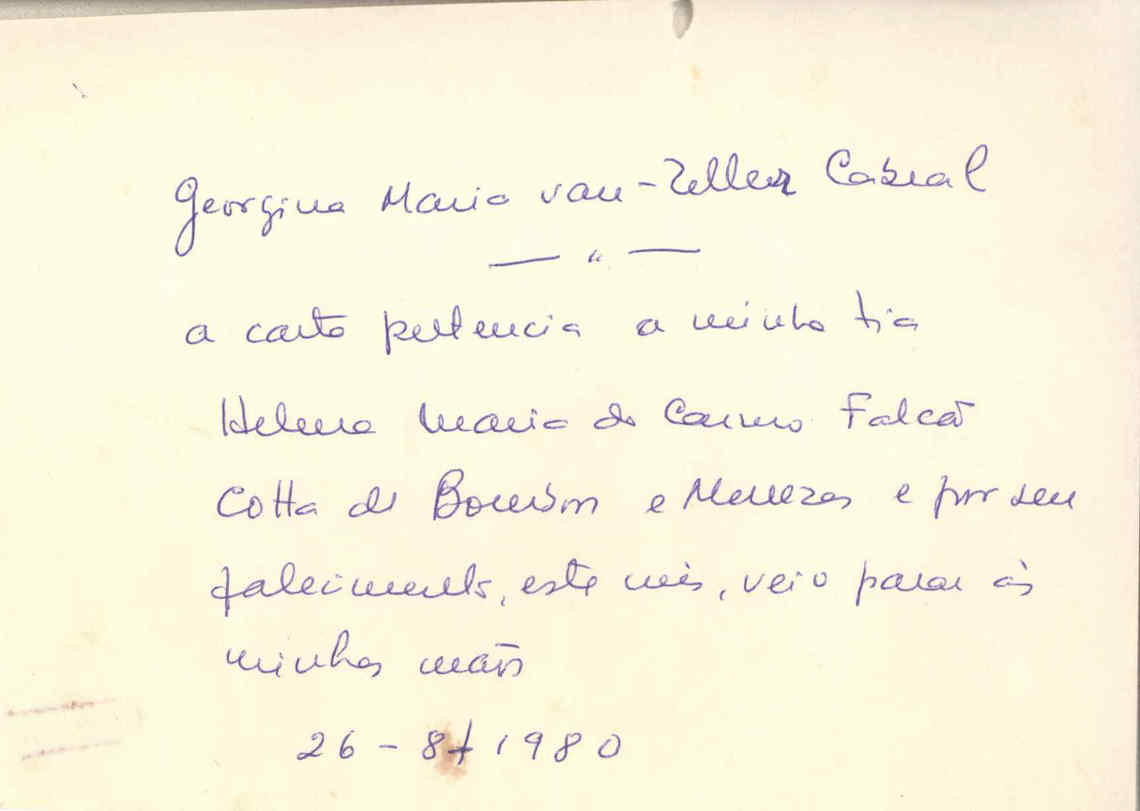 Georgina Maria van-Zeller Cabral
— " —
a carta pertencia a minha tia
Helena Maria do Carmo Falcão
Cotta de Bourbon e Menezes e por seu
falecimento, este mês, veio parar às
minhas mãos
26-8-1980